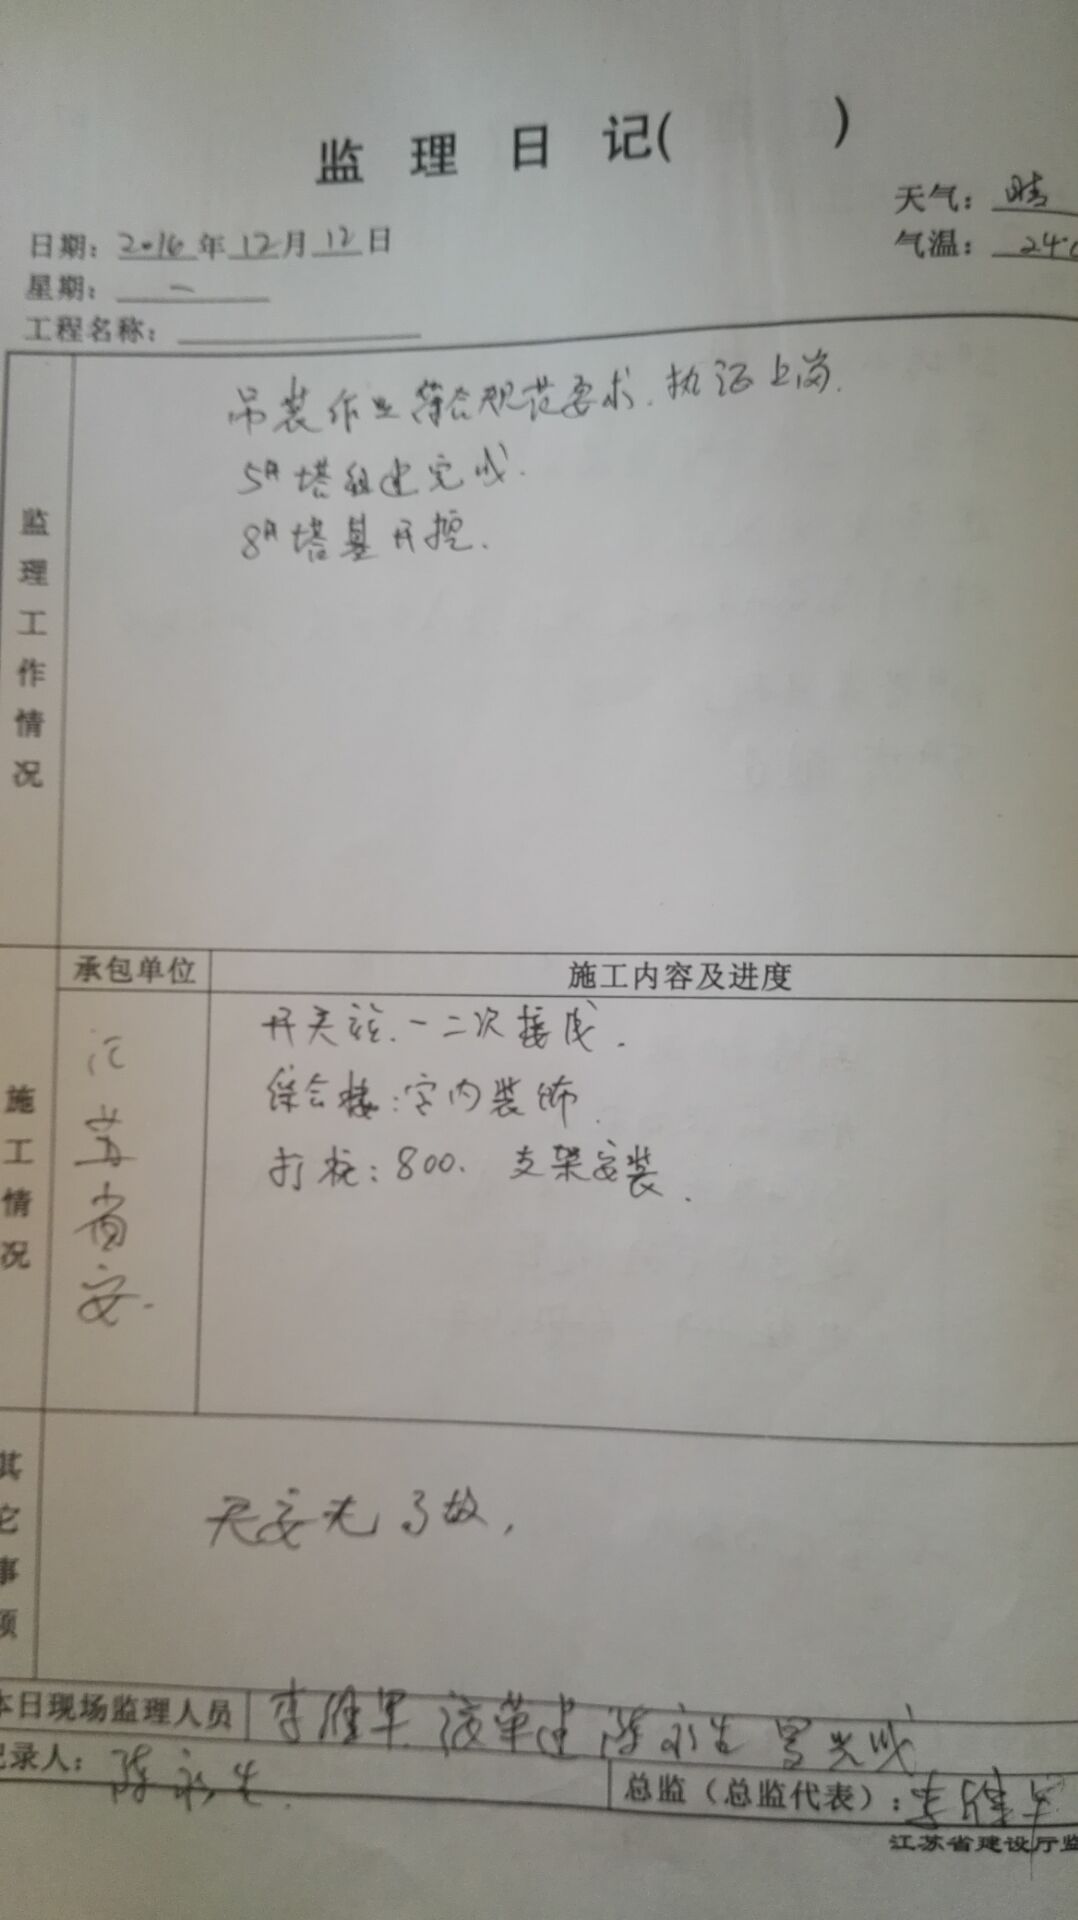 监理日记( )
天气：晴
日期：2016年12月12日
气温：24℃
星期：一
工程名称：
监理工作情况
吊装作业符合规范要求.执证上岗.
5#塔组建完成.
8#塔基开挖.
承包单位
施工内容及进度
施工情况
江苏省安.
开关站.一二次接线.
综合楼:室内装饰.
打桩:800. 支架安装.
其它事项
无故,
本日现场监理人员
陈永生
记录人：陈永生.
总监（总监代表）：
江苏省建设厅监